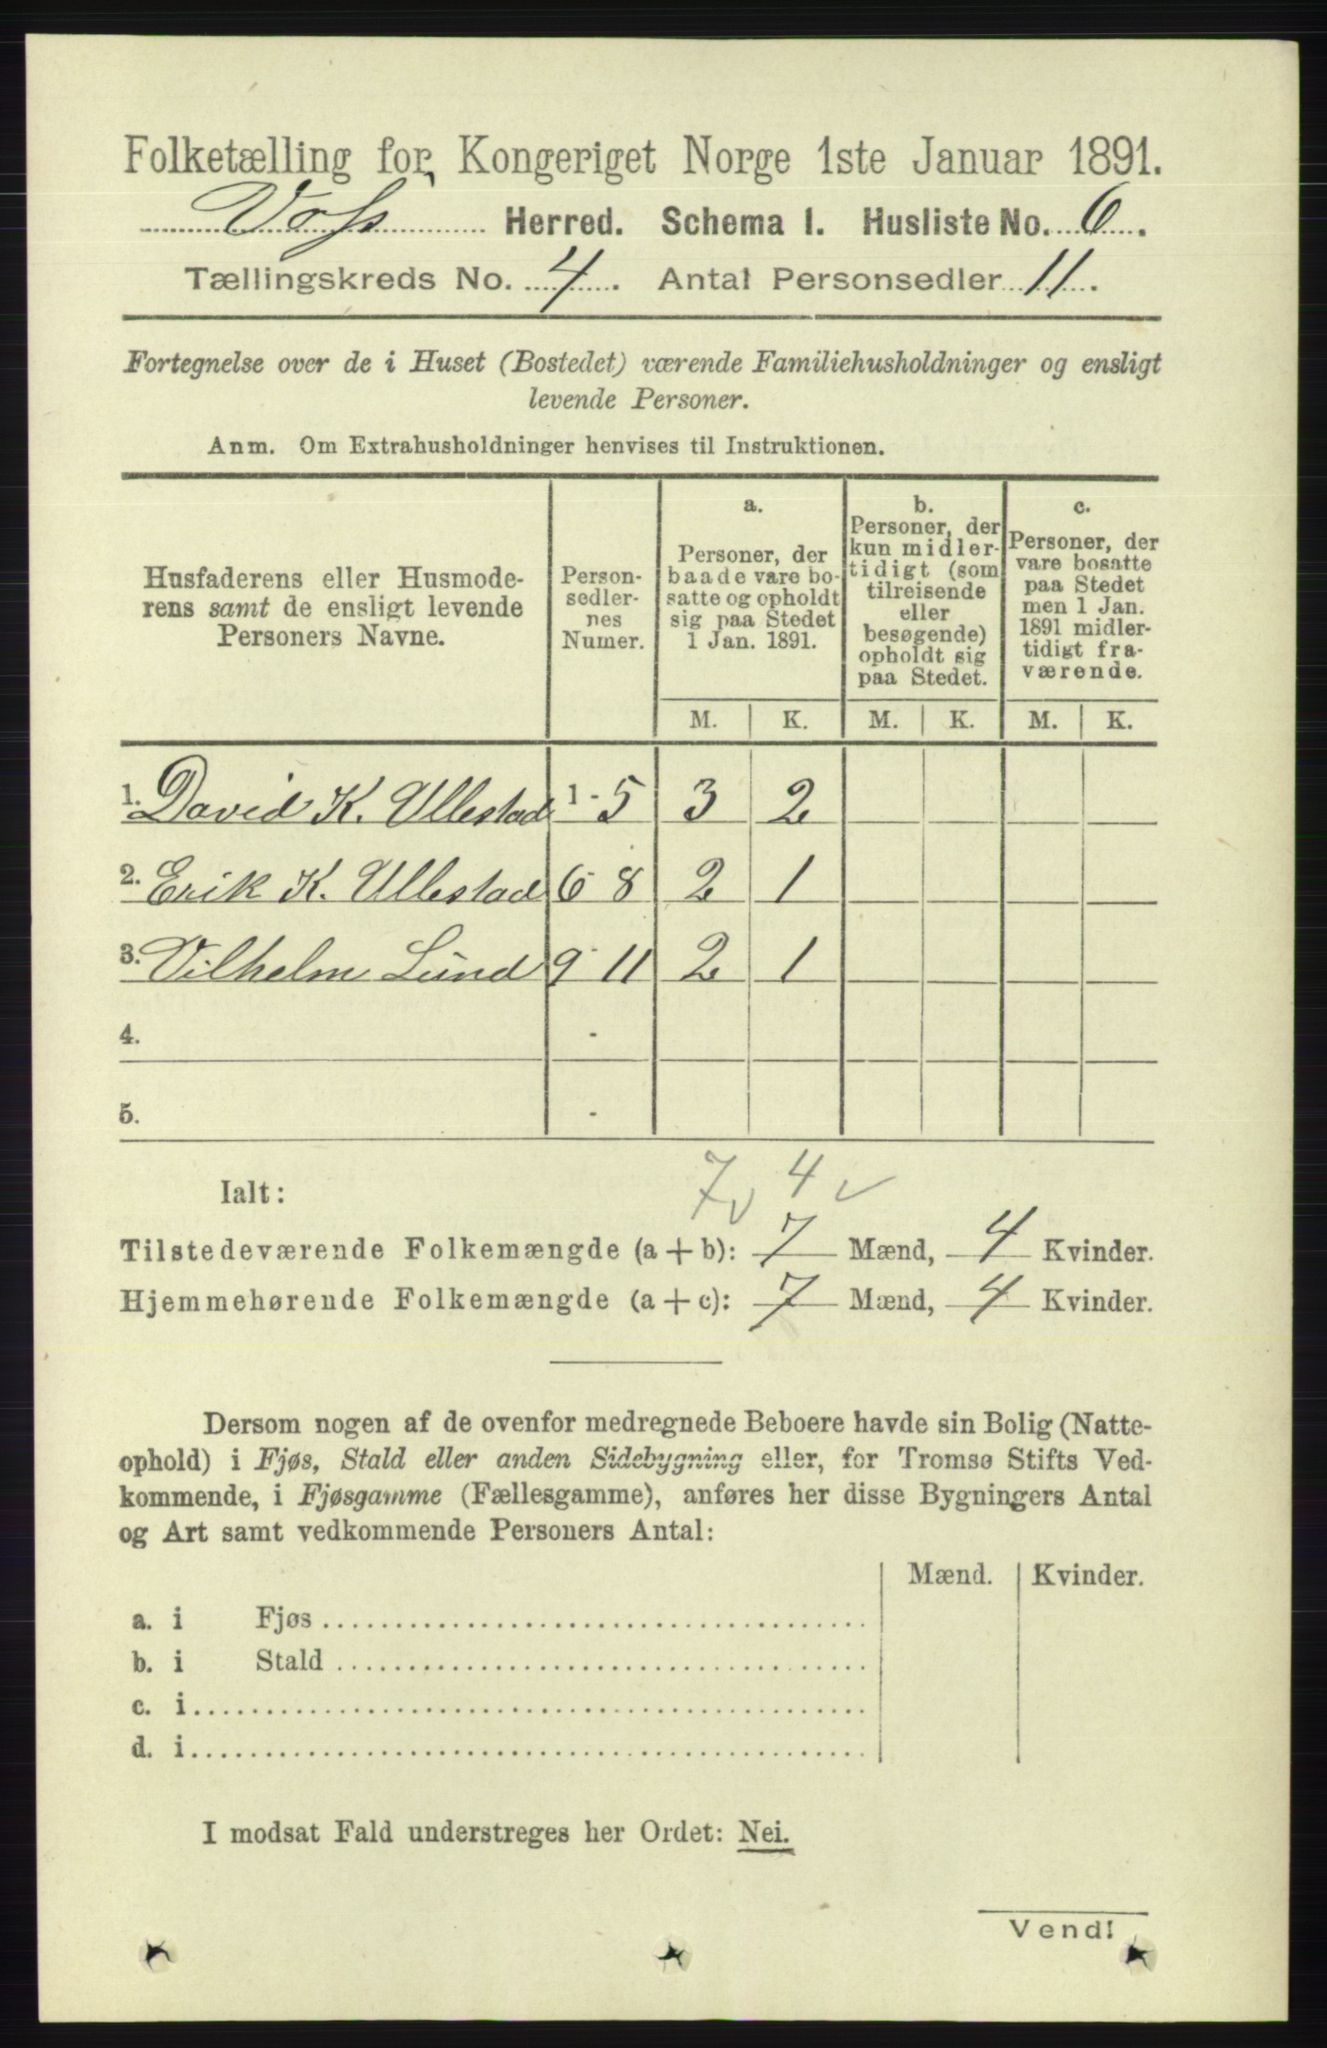 Folketælling for Kongeriget Norge 1ste Januar 1891.
Voss Herred. Schema 1. Husliste No. 6.
Tællingskreds No. 4. Antal Personsedler 11.
Fortegnelse over de i Huset (Bostedet) værende Familiehusholdninger og ensligt
levende Personer.
Anm. Om Extrahusholdninger henvises til Instruktionen.
Husfaderens eller Husmode-
rens samt de ensligt levende
Personers Navne.
Person-
sedler-
nes
Numer.
a.
Personer, der
baade vare bo-
satte og opholdt
sig paa Stedet
1 Jan. 1891.
b.
Personer, der
kun midler-
tidigt (som
tilreisende
eller
besøgende)
opholdt sig
paa Stedet.
c.
Personer, der
vare bosatte
paa Stedet
men 1 Jan.
1891 midler-
tidigt fra-
værende.
M. K. M. K. M. K.
1. David K. Ullestad 1 - 5 3 2
2. Erik K. Ullestad 6 - 8 2 1
3. Vilhelm Lund 9 - 11 2 1
4. -
5. -
Ialt: 7 4
Tilstedeværende Folkemængde (a + b): 7 Mænd, 4 Kvinder.
Hjemmehørende Folkemængde (a + c): 7 Mænd, 4 Kvinder.
Dersom nogen af de ovenfor medregnede Beboere havde sin Bolig (Natte-
ophold) i Fjøs, Stald eller anden Sidebygning eller, for Tromsø Stifts Ved-
kommende, i Fjøsgamme (Fællesgamme), anføres her disse Bygningers Antal
og Art samt vedkommende Personers Antal:
Mænd. Kvinder.
a. i Fjøs
b. i Stald
c. i
d. i
I modsat Fald understreges her Ordet: Nei.
Vend!